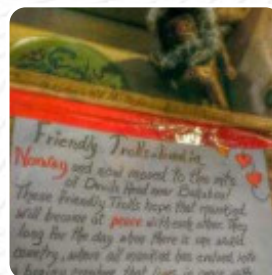 Friendly Trolls lived in
Norway and now moved to the mts
of Devils Head near
These Friendly Trolls hope that mankind
will become at peace with each other. They
long for the day when there is one world
country, where all mankind has evolved into